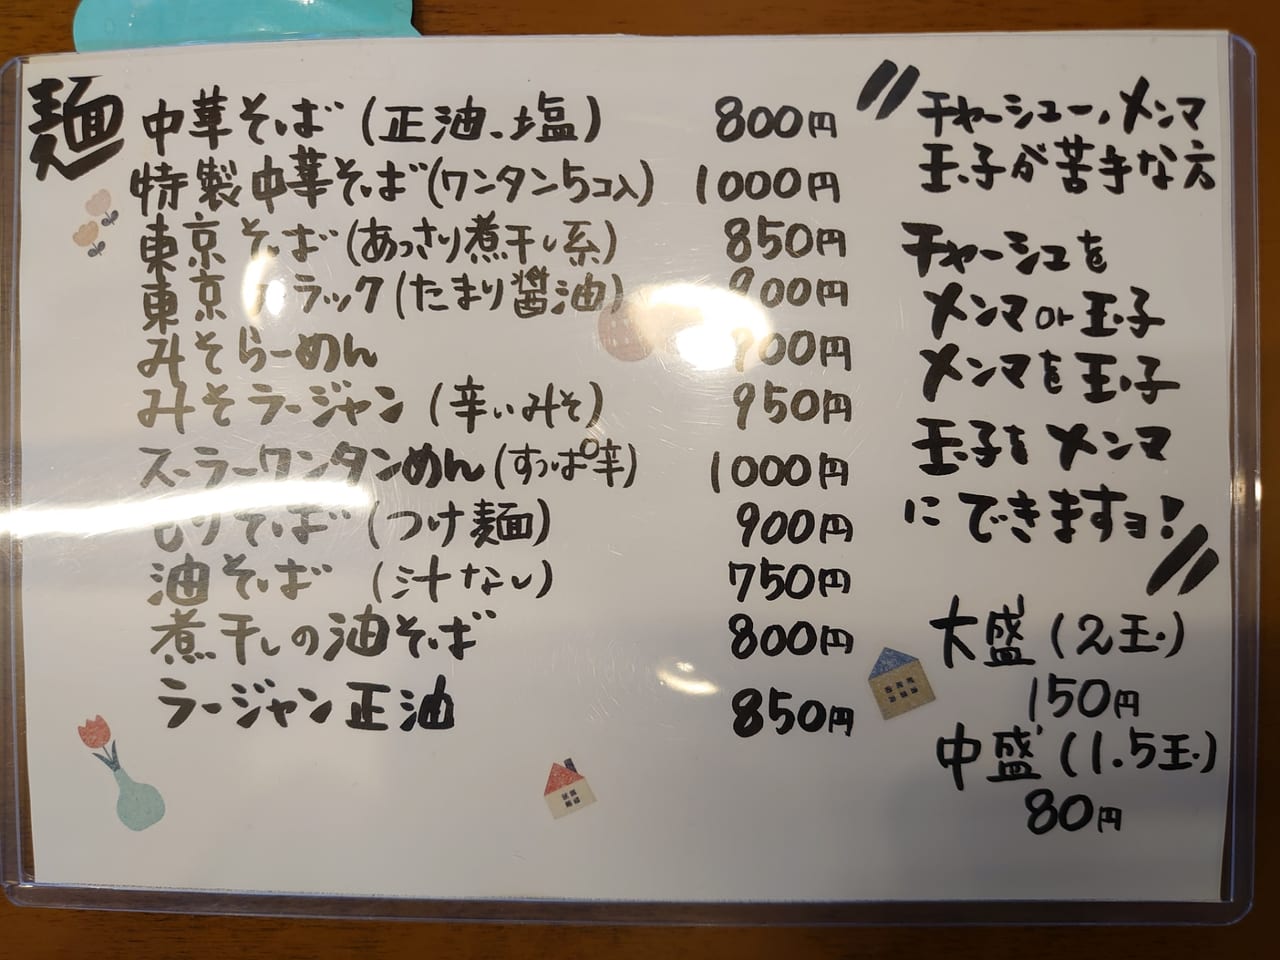 麺
中華そば (正油、塩) 800円
特製中華そば (ワンタン5コ入) 1000円
東京そば (あっさり煮干し系) 850円
東京ブラック (たまり醤油) 900円
みそらーめん 900円
みそラージャン (辛いみそ) 950円
スーラーワンタンめん (すっぱ辛) 1000円
もりそば (つけ麺) 900円
油そば (汁なし) 750円
煮干しの油そば 800円
ラージャン正油 850円
〃チャーシュー、メンマ
玉子が苦手な方
チャーシュを
メンマor玉子
メンマを玉子
玉子をメンマ
にできますョ!〃
大盛 (2玉)
150円
中盛 (1.5玉)
80円